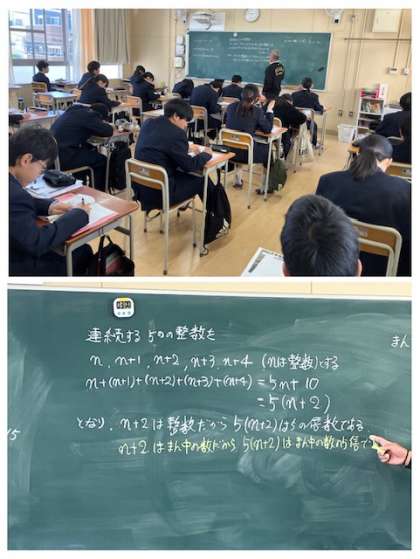 連続する5つの整数を
n, n+1, n+2, n+3, n+4 (nは整数)とする
n+(n+1)+(n+2)+(n+3)+(n+4) = 5n+10
= 5(n+2)
となり、n+2は整数だから 5(n+2)は5の倍数である。
n+2はまん中の数だから 5(n+2)はまん中の数の5倍で
まん
15